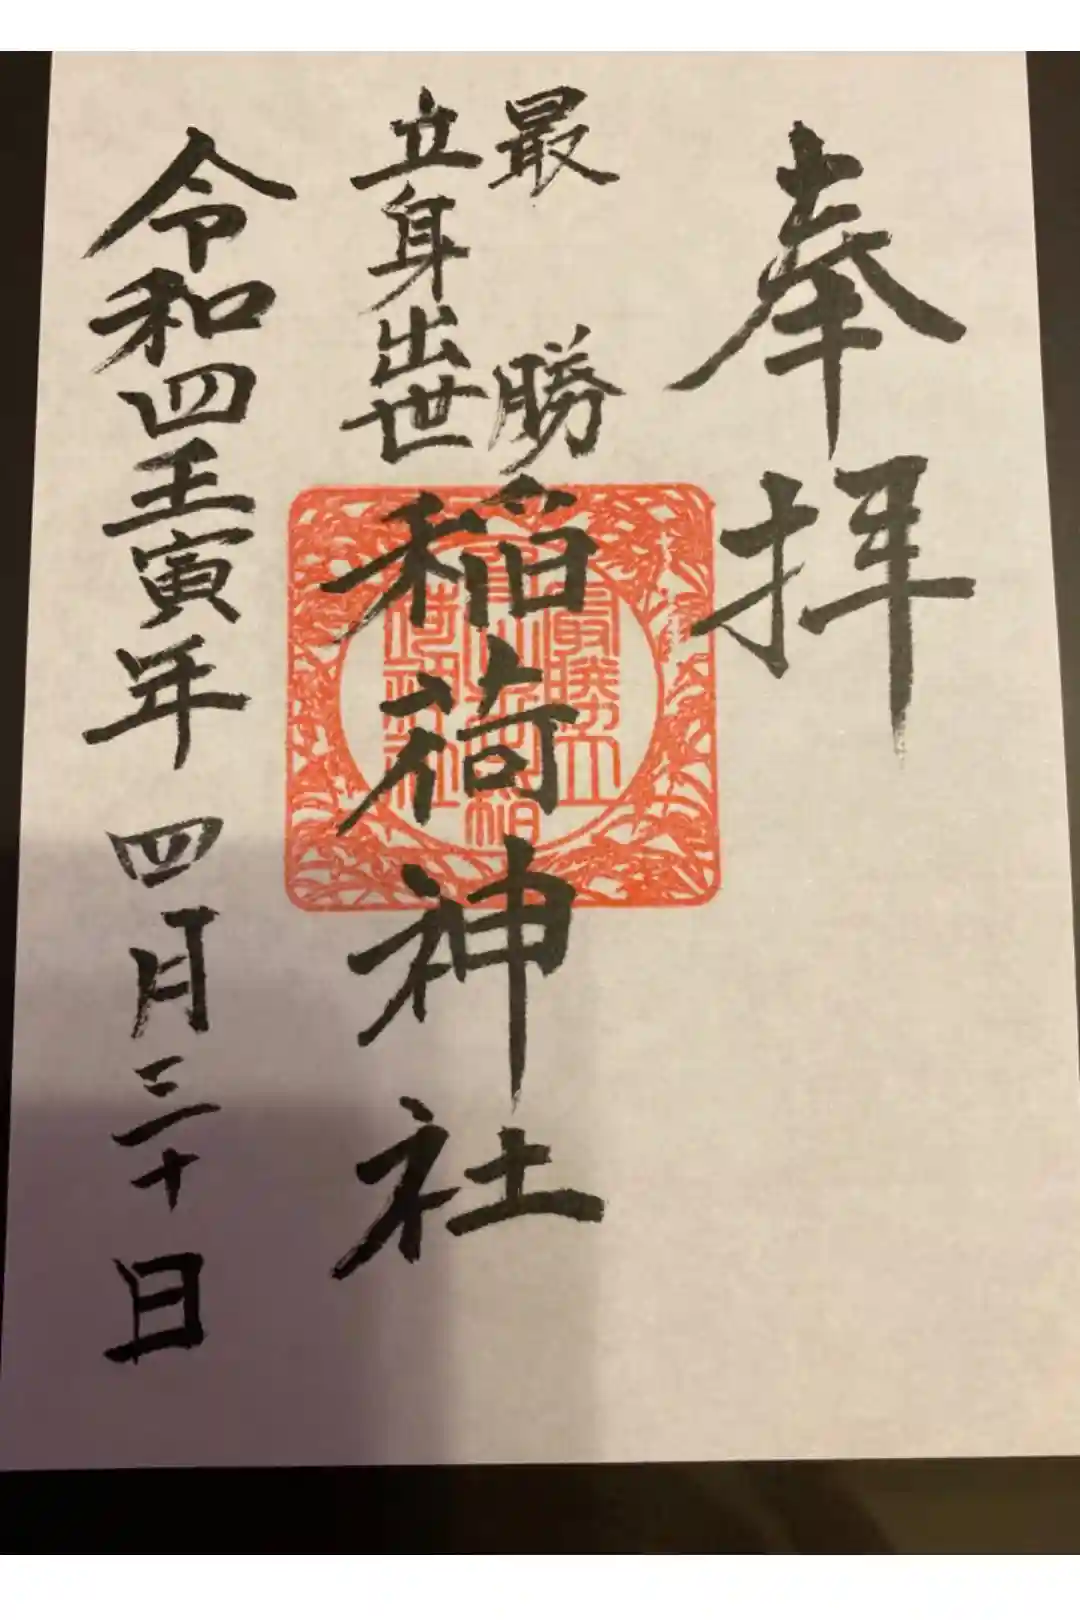 奉拝
最勝
立身出世
稲荷神社
令和四壬寅年 四月三十日